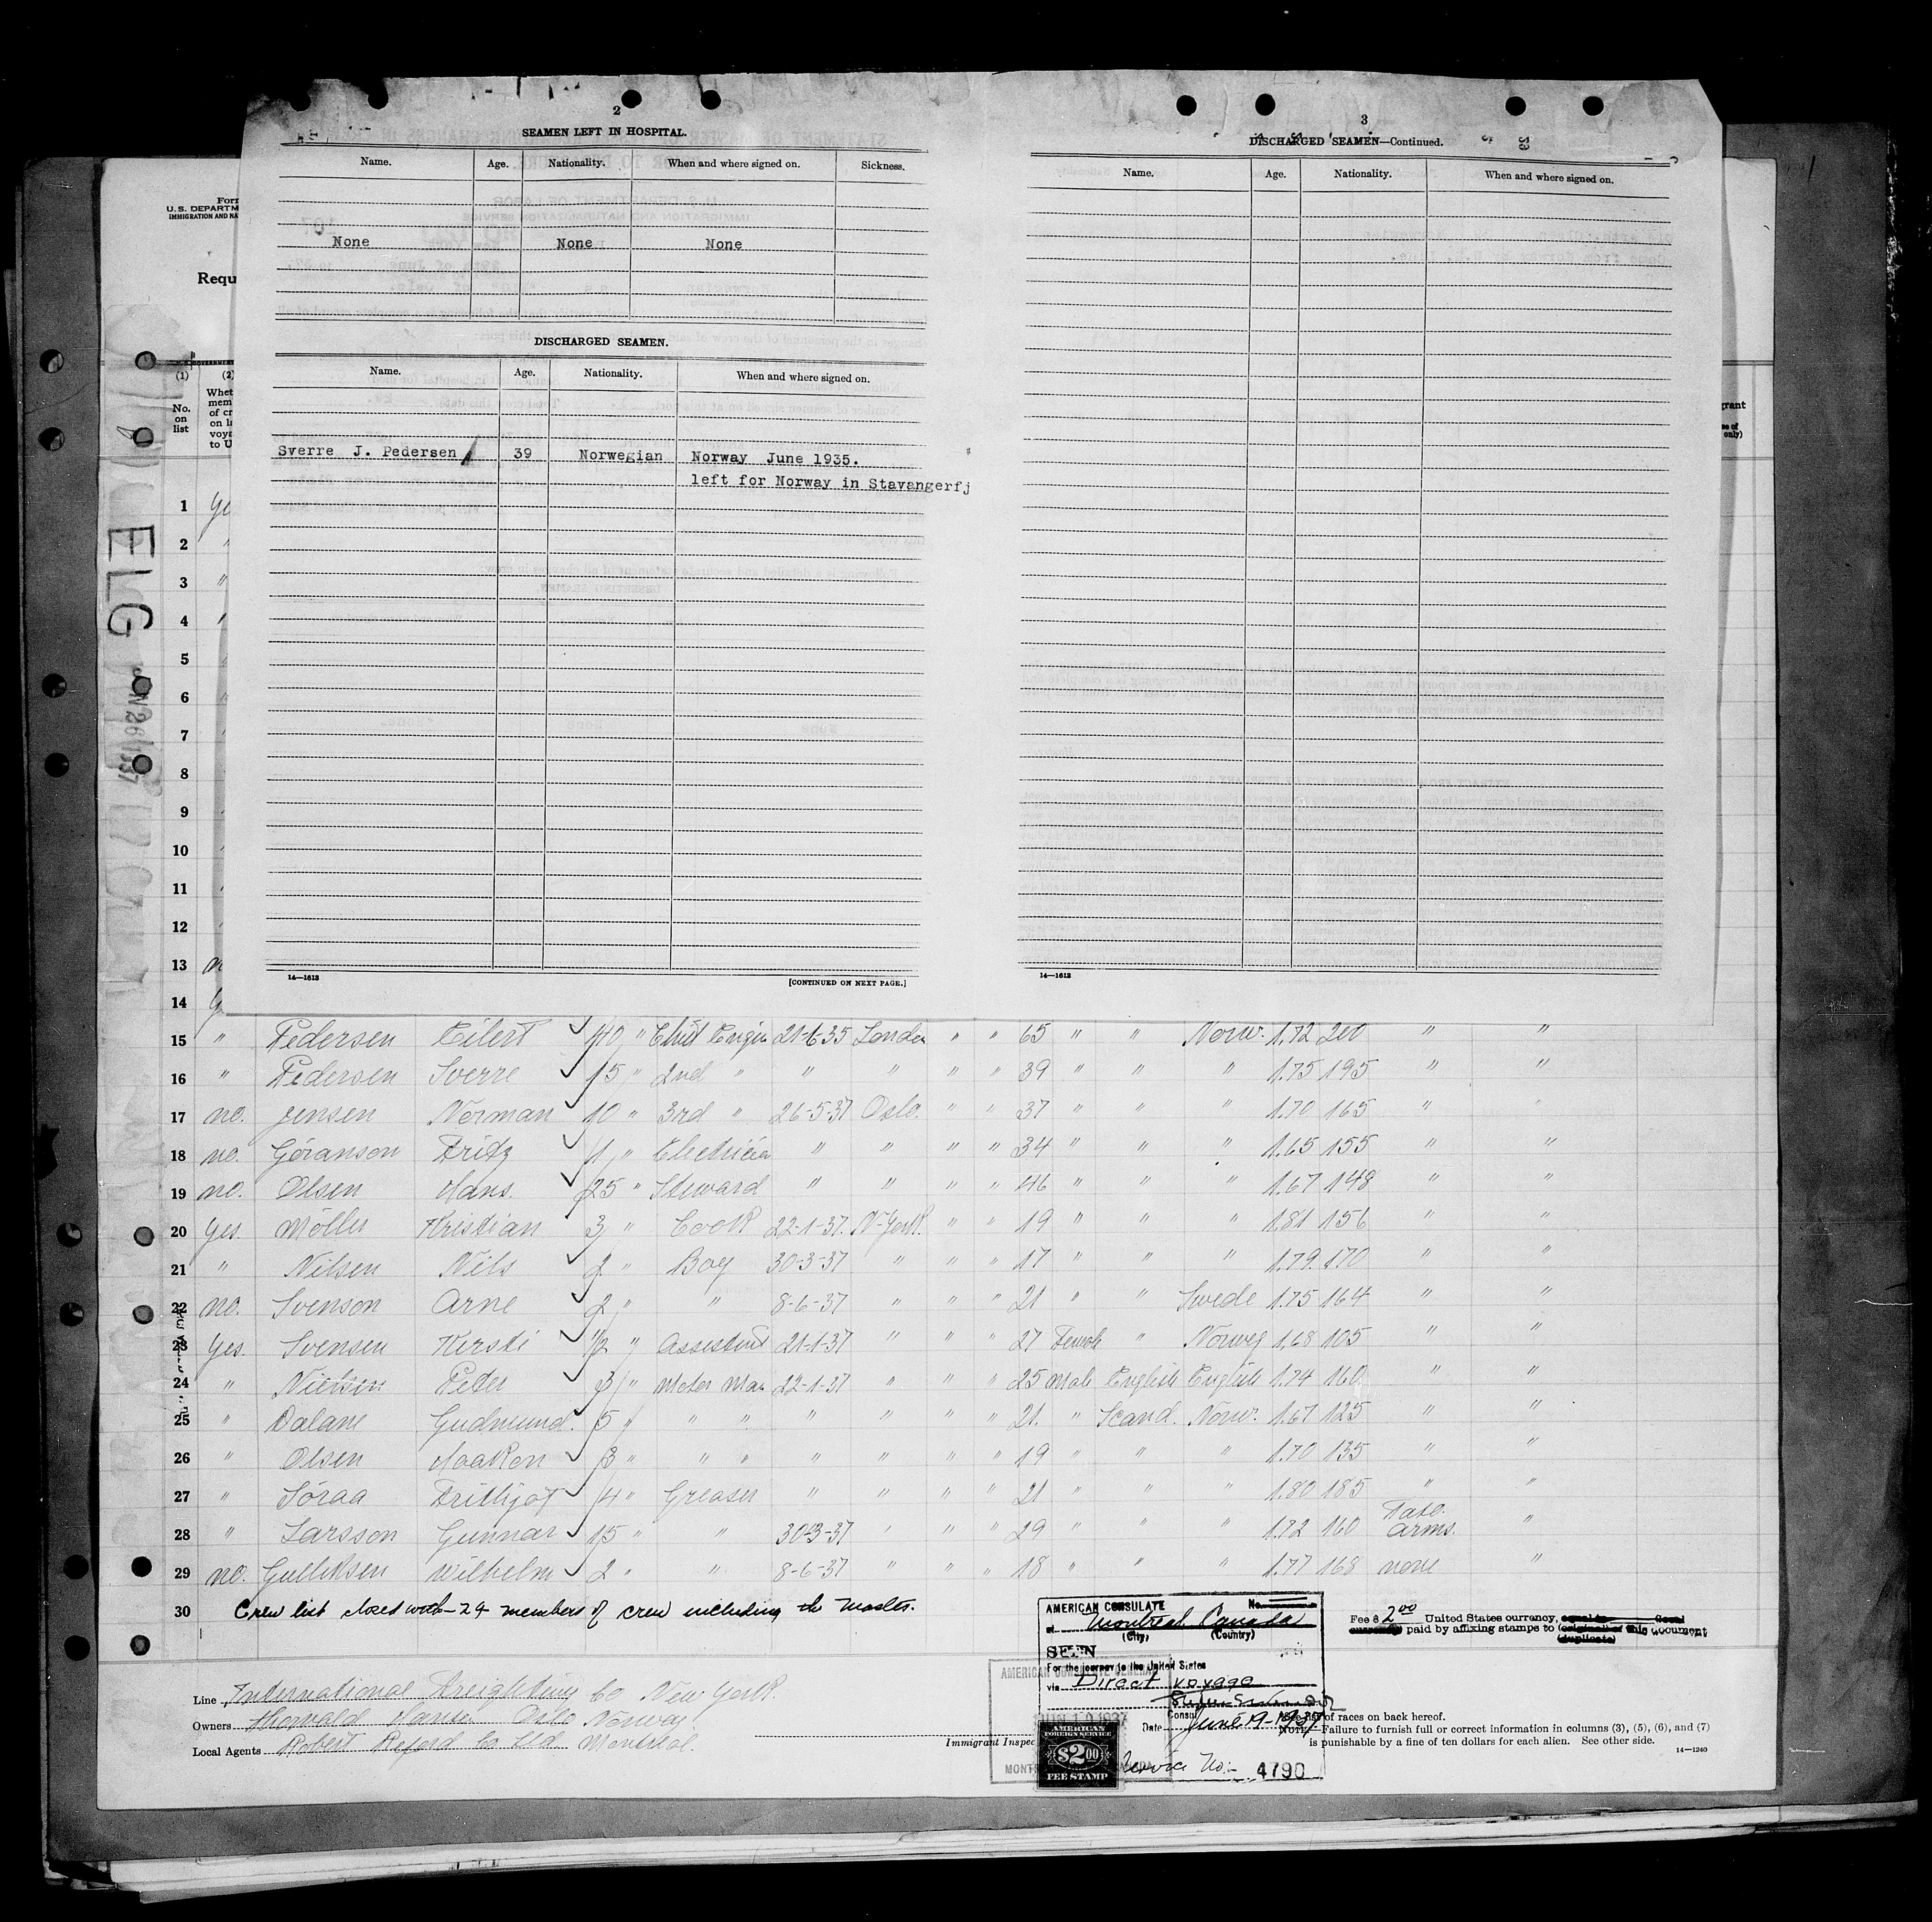 2
SEAMEN LEFT IN HOSPITAL.
Name. Age. Nationality. When and where signed on. Sickness.
None None None
DISCHARGED SEAMEN.
Name. Age. Nationality. When and where signed on.
Sverre J. Pedersen 39 Norwegian Norway June 1935.
left for Norway in Stavangerfj
14—1613 [CONTINUED ON NEXT PAGE.]
3
DISCHARGED SEAMEN—Continued.
Name. Age. Nationality. When and where signed on.
14—1613
Form
U.S. DEPARTM
IMMIGRATION AND NA
Requ
(1) (2)
No. on list
Whet
mem
of cr
on la
voya
to U
ELG
JUN 26 1937
1
2
3
4
5
6
7
8
9
10
11
12
13
14
15 " Pedersen Eilert 40 " Chief Engin 21-6-35 London " " 65 " " Norw. 1.72 200 " "
16 " Pedersen Sverre 15 " 2nd " " " " " 39 " " " 1.75 195 " "
17 no. Jensen Norman 10 " 3rd " 26-5-37 Oslo. " " 37 " " " 1.70 165 " "
18 no. Göranson Fritz 1 " Electricia " " " " 34 " " " 1.65 155 " "
19 no. Olsen Hans. 25 " Steward " " " " 46 " " " 1.67 148 " "
20 Yes. Möller Kristian 3 " Cook 22-1-37. N-York. " " 19 " " " 1.81 156 " "
21 " Nilsen Nils 2 " Boy 30-3-37 " " " 17 " " " 1.79. 170 " "
22 no. Svenson Arne 2 " " 8-6-37 " " " 21 " " Swede 1.75 164 " "
23 Yes. Svensen Kersti 1/2 " Assistent 21-1-37 " " " 27 Female " Norweg 1.68 105 " "
24 " Nielsen Peter 3 " Motor Man 22-1-37 " " " 25 Male English English 1.74 160 " "
25 " Dalane Gudmund. 5 " " " " " " " 21. " Scand. Norw. 1.67 125 " "
26 " Olsen Haakon 3 " " " " " " " 19 " " " 1.70 135 " "
27 " Söraa Frithjof 4 " Greaser " " " " 21 " " " 1.80 185 " "
28 " Larsson Gunnar 15 " " 30-3-37 " " " 29 " " " 1.72 160 Tato. arms. "
29 no. Gulliksen Wilhelm 2 " " 8-6-37 " " " 18 " " " 1.77 168 none "
30 Crew list closed with - 29 members of crew including the Master.
Line International Freighting Co New York.
Owners Thorvald Hansen Oslo Norway
Local Agents Robert Reford Co Ltd. Montreal.
Immigrant Inspec
AMERICAN CONSULATE No.
at Montreal Canada
(City) (Country)
SEEN
For the journey to the United States
via Direct voyage
Consul
Date June 19-1937
Service No:- 4790
AMERICAN CONSULATE GENERAL
JUN 19 1937
AMERICAN
FOREIGN SERVICE
$2.00
FEE STAMP
Fee $ 2.00 United States currency,
paid by affixing stamps to this document
(duplicate)
list of races on back hereof.
NOTE—Failure to furnish full or correct information in columns (3), (5), (6), and (7)
is punishable by a fine of ten dollars for each alien. See other side.
14—1240